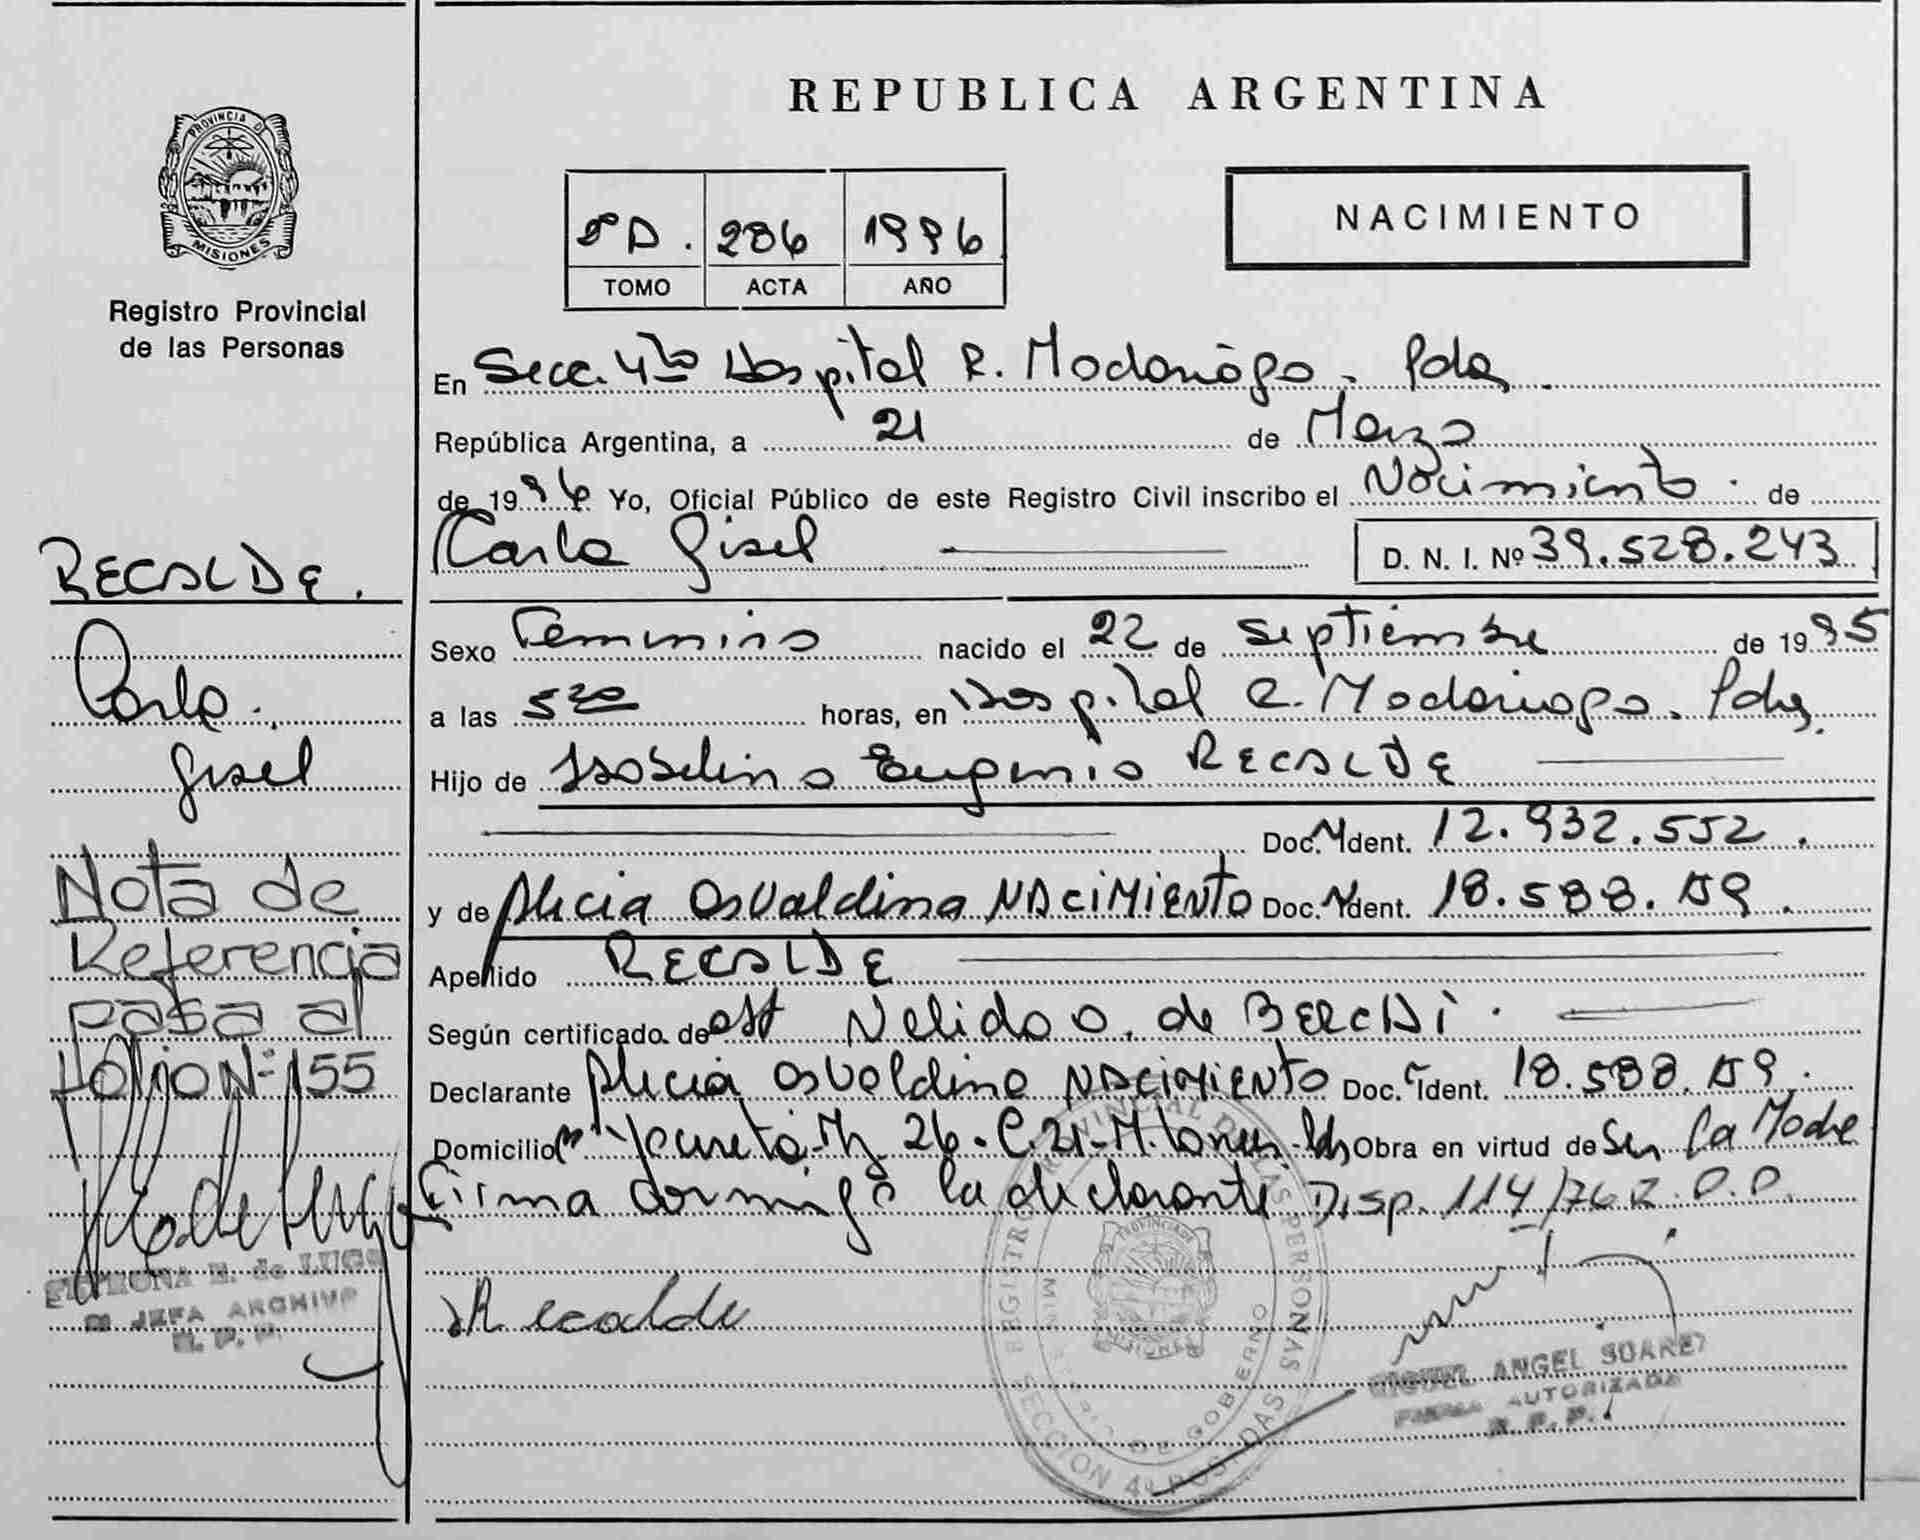 PROVINCIA DE
MISIONES
Registro Provincial
de las Personas
RECALDE.
Carla
Gisel
Nota de
Referencia
pasa al
Folio Nº 155
E. de LUGO
JEFA ARCHIVO
R. P. P.
REPUBLICA ARGENTINA
D. 286 1996
TOMO ACTA AÑO
NACIMIENTO
En Secc. 4ta Hospital R. Madariaga. Pdas.
República Argentina, a 21 de Marzo
de 1996 Yo, Oficial Público de este Registro Civil inscribo el Nacimiento de
Carla Gisel D. N. I. Nº 39.528.243
Sexo Femenino nacido el 22 de Septiembre de 1995
a las 5 20 horas, en Hospital R. Madariaga. Pdas.
Hijo de Isabelino Eugenio RECALDE
Doc. Ident. 12.932.552.
y de Alicia Osvaldina NACIMIENTO Doc. Ident. 18.588.159.
Apellido RECALDE
Según certificado de Obst Nelida O. de BERCHI.
Declarante Alicia Osvaldina NACIMIENTO Doc. Ident. 18.588.159.
Domicilio Yacyretá Mz 26 - C.21 - Obra en virtud de Ser la Madre
Firma conmigo la declarante Disp. 114/76
Recalde
REGISTRO PROVINCIAL DE LAS PERSONAS
DE GOBIERNO
SECCION 4º POSADAS
MIGUEL ANGEL SUAREZ
FIRMA AUTORIZADA
R. P. P.